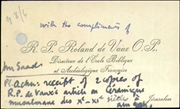 9 8/6
with the compliments of
R. P. Roland de Vaux O. P.
Directeur de l'École Biblique
et Archéologique Française
Ans Saade
Pl. Ackn. receipt of 2 copies of
R.P. de Vaux's article on Céramique
musulmane des Xe-XIe siècles
Jerusalem